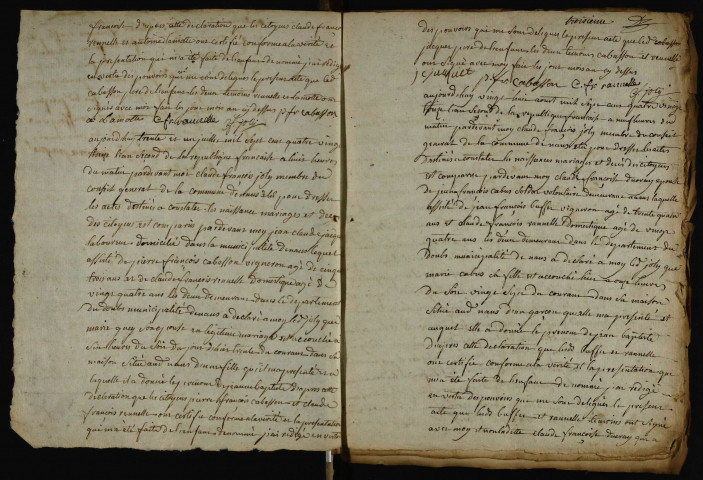 françoise d'apres cette declaration que les citoyens claude françois
renuelle et antoine lamotte ont certifié conforme a la vérité et
la presentation qui m'a été faite de l'enfant denommé j'ai rédigé
en vertu des pouvoirs qui me sont delegués le present acte que led
cabasson pere de l'enfant les deux temoins renuelle et lamotte ont
signés avec moy fait les jour mois an cy dessus p. fr. cabasson
a lamotte c f renuelle joly
aujourd'huy trente et un juillet mil sept cent quatre vingt
treize l'an second de la republique françoise a huit heures
du matin pardevant moi claude françois joly membre du
conseil general de la commune de nans elu pour dresser
les actes destinés a constater les naissances mariages et deces
des citoyens est comparu pardevant moy jean claude jacques
laboureur domicilié dans la municipalité de nans lequel
assisté de pierre françois cabasson vigneron agé de cinquante
trois ans et de claude françois renuelle domestique agé de
vingt quatre ans les deux demeurans dans le departement
du doubs municipalité de nans a declaré a moy led joly que
marie son epouse en legitime mariage est accouchée a
six heures du soir du jour d'hier trente du courant dans sa
maison située aud nans d'une fille qu'il m'a presenté et a
laquelle il a donné les prenoms de jeanne baptiste d'apres cette
declaration que les citoyens pierre françois cabasson et claude
françois renuelle ont certifié conforme a la verité et la presentation
qui m'a été faite de l'enfant denommé j'ai rédigé en vertu
troisieme
des pouvoirs qui me sont delegués le present acte que led cabasson
jacques pere de l'enfant les deux temoins cabasson et renuelle
ont signé avec moy fait les jour mois an cy dessus
p. fr. cabasson c. f. renuelle
joly
aujourd'huy vingt aout mil sept cent quatre vingt
treize l'an second de la republique françoise a neuf heures du
matin pardevant moy claude françois joly membre du conseil
general de la commune de nans elu pour dresser les actes
destinés a constater les naissances mariages et deces des citoyens
est comparu pardevant moy claude françoise epouse
de françois volontaire demeurant a nans laquelle
assistée de jean françois buffe vigneron agé de trente quatre
ans et claude françois renuelle domestique agé de vingt
quatre ans les deux demeurans dans le departement du
doubs municipalité de nans a declaré a moy led joly que
marie sa fille est accouchée hier a onze heures
du soir vingt du courant dans sa maison
située aud nans d'un garçon qu'elle m'a presenté et
auquel elle a donné le prenom de jean baptiste
d'apres cette declaration que lesd buffe et renuelle
ont certifié conforme a la verité et la presentation qui
m'a été faite de l'enfant denommé j'ai redigé
en vertu des pouvoirs qui me sont delegués le present
acte que lesd buffe et renuelle temoins ont signé
avec moy et non ladite claude françoise qui a